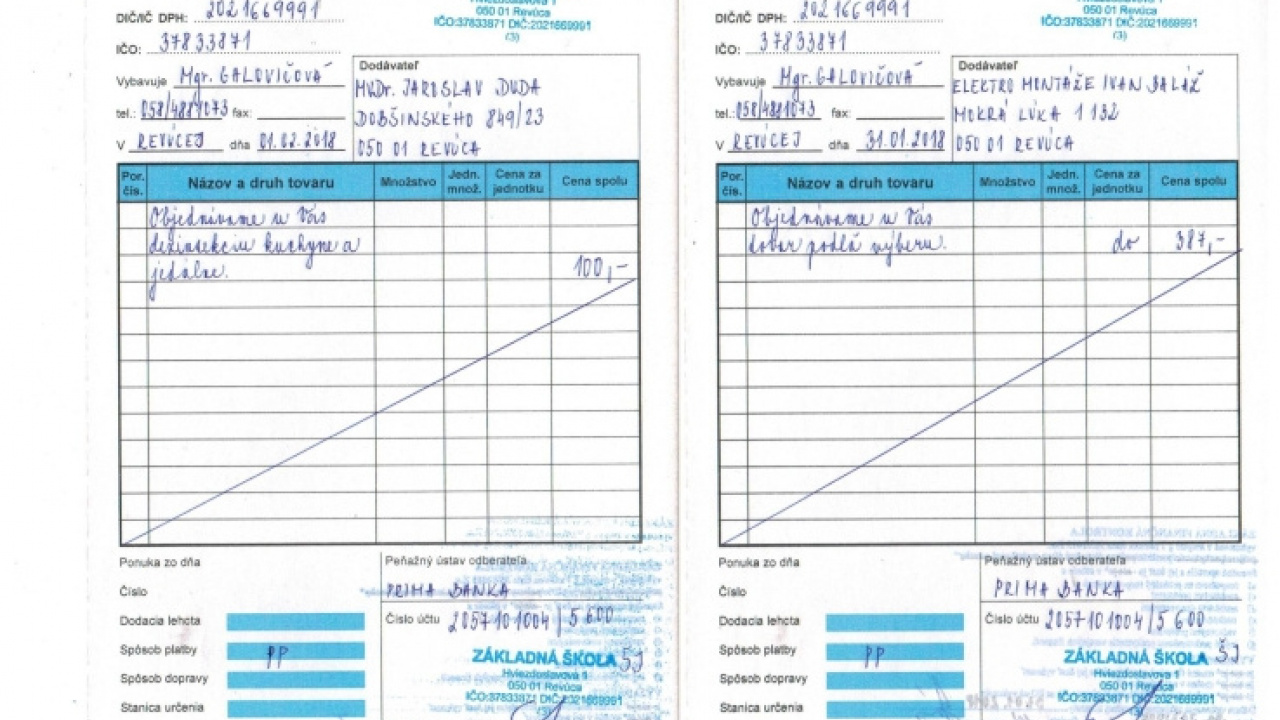 DIČ/IČ DPH: 2021669991
Hviezdoslavova 1
050 01 Revúca
IČO:37833871 DIČ:2021669991
(3)
IČO: 37833871
Vybavuje Mgr. GALOVIČOVÁ
tel.: 058/4881073 fax:
V REVÚCEJ dňa 01.02.2018
Dodávateľ
MVDr. JAROSLAV DUDA
DOBŠINSKÉHO 849/23
050 01 REVÚCA
Por. čís. Názov a druh tovaru Množstvo Jedn. množ. Cena za jednotku Cena spolu
Objednávame u Vás
dezinsekciu kuchyne a
jedálne. 100,-
Ponuka zo dňa
Číslo
Dodacia lehota
Spôsob platby PP
Spôsob dopravy
Stanica určenia
Peňažný ústav odberateľa
PRIMA BANKA
Číslo účtu 2057101004/5600
ZÁKLADNÁ ŠKOLA ŠJ
Hviezdoslavova 1
050 01 Revúca
IČO:37833871 DIČ:2021669991
(3)
DIČ/IČ DPH: 2021669991
Hviezdoslavova 1
050 01 Revúca
IČO:37833871 DIČ:2021669991
(3)
IČO: 37833871
Vybavuje Mgr. GALOVIČOVÁ
tel.: 058/4881073 fax:
V REVÚCEJ dňa 31.01.2018
Dodávateľ
ELEKTRO MONTÁŽE IVAN BALÁŽ
MOKRÁ LÚKA 1 132
050 01 REVÚCA
Por. čís. Názov a druh tovaru Množstvo Jedn. množ. Cena za jednotku Cena spolu
Objednávame u Vás
tovar podľa výberu. do 387,-
Ponuka zo dňa
Číslo
Dodacia lehota
Spôsob platby PP
Spôsob dopravy
Stanica určenia
Peňažný ústav odberateľa
PRIMA BANKA
Číslo účtu 2057101004/5600
ZÁKLADNÁ ŠKOLA ŠJ
Hviezdoslavova 1
050 01 Revúca
IČO:37833871 DIČ:2021669991